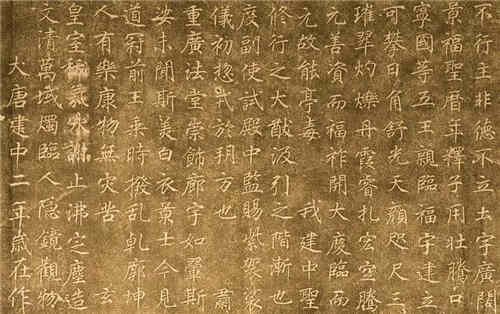 不行主非德不立土宇廣闊
景福聖曆年釋子用壯騰口
寧國等五王親臨福宇建立
可攀日角舒光天顏咫尺三
璀翠灼爍丹霞睿札宏空騰
元善資而福祚開大慶臨而
元故能亭毒 我建中聖
修行之大猷汲引之階漸也
度副使試殿中監賜紫袈裟
儀初惣戎於朔方也 肅
重廣法堂崇飾廊宇如翬斯
娑未聞斯美白衣景士今見
道冠前王乘時撥亂乾廓坤
人有樂康物無災苦 玄
皇室祲氛永謝止沸定塵造
文清萬域燭臨人隱鏡觀物
大唐建中二年歲在作